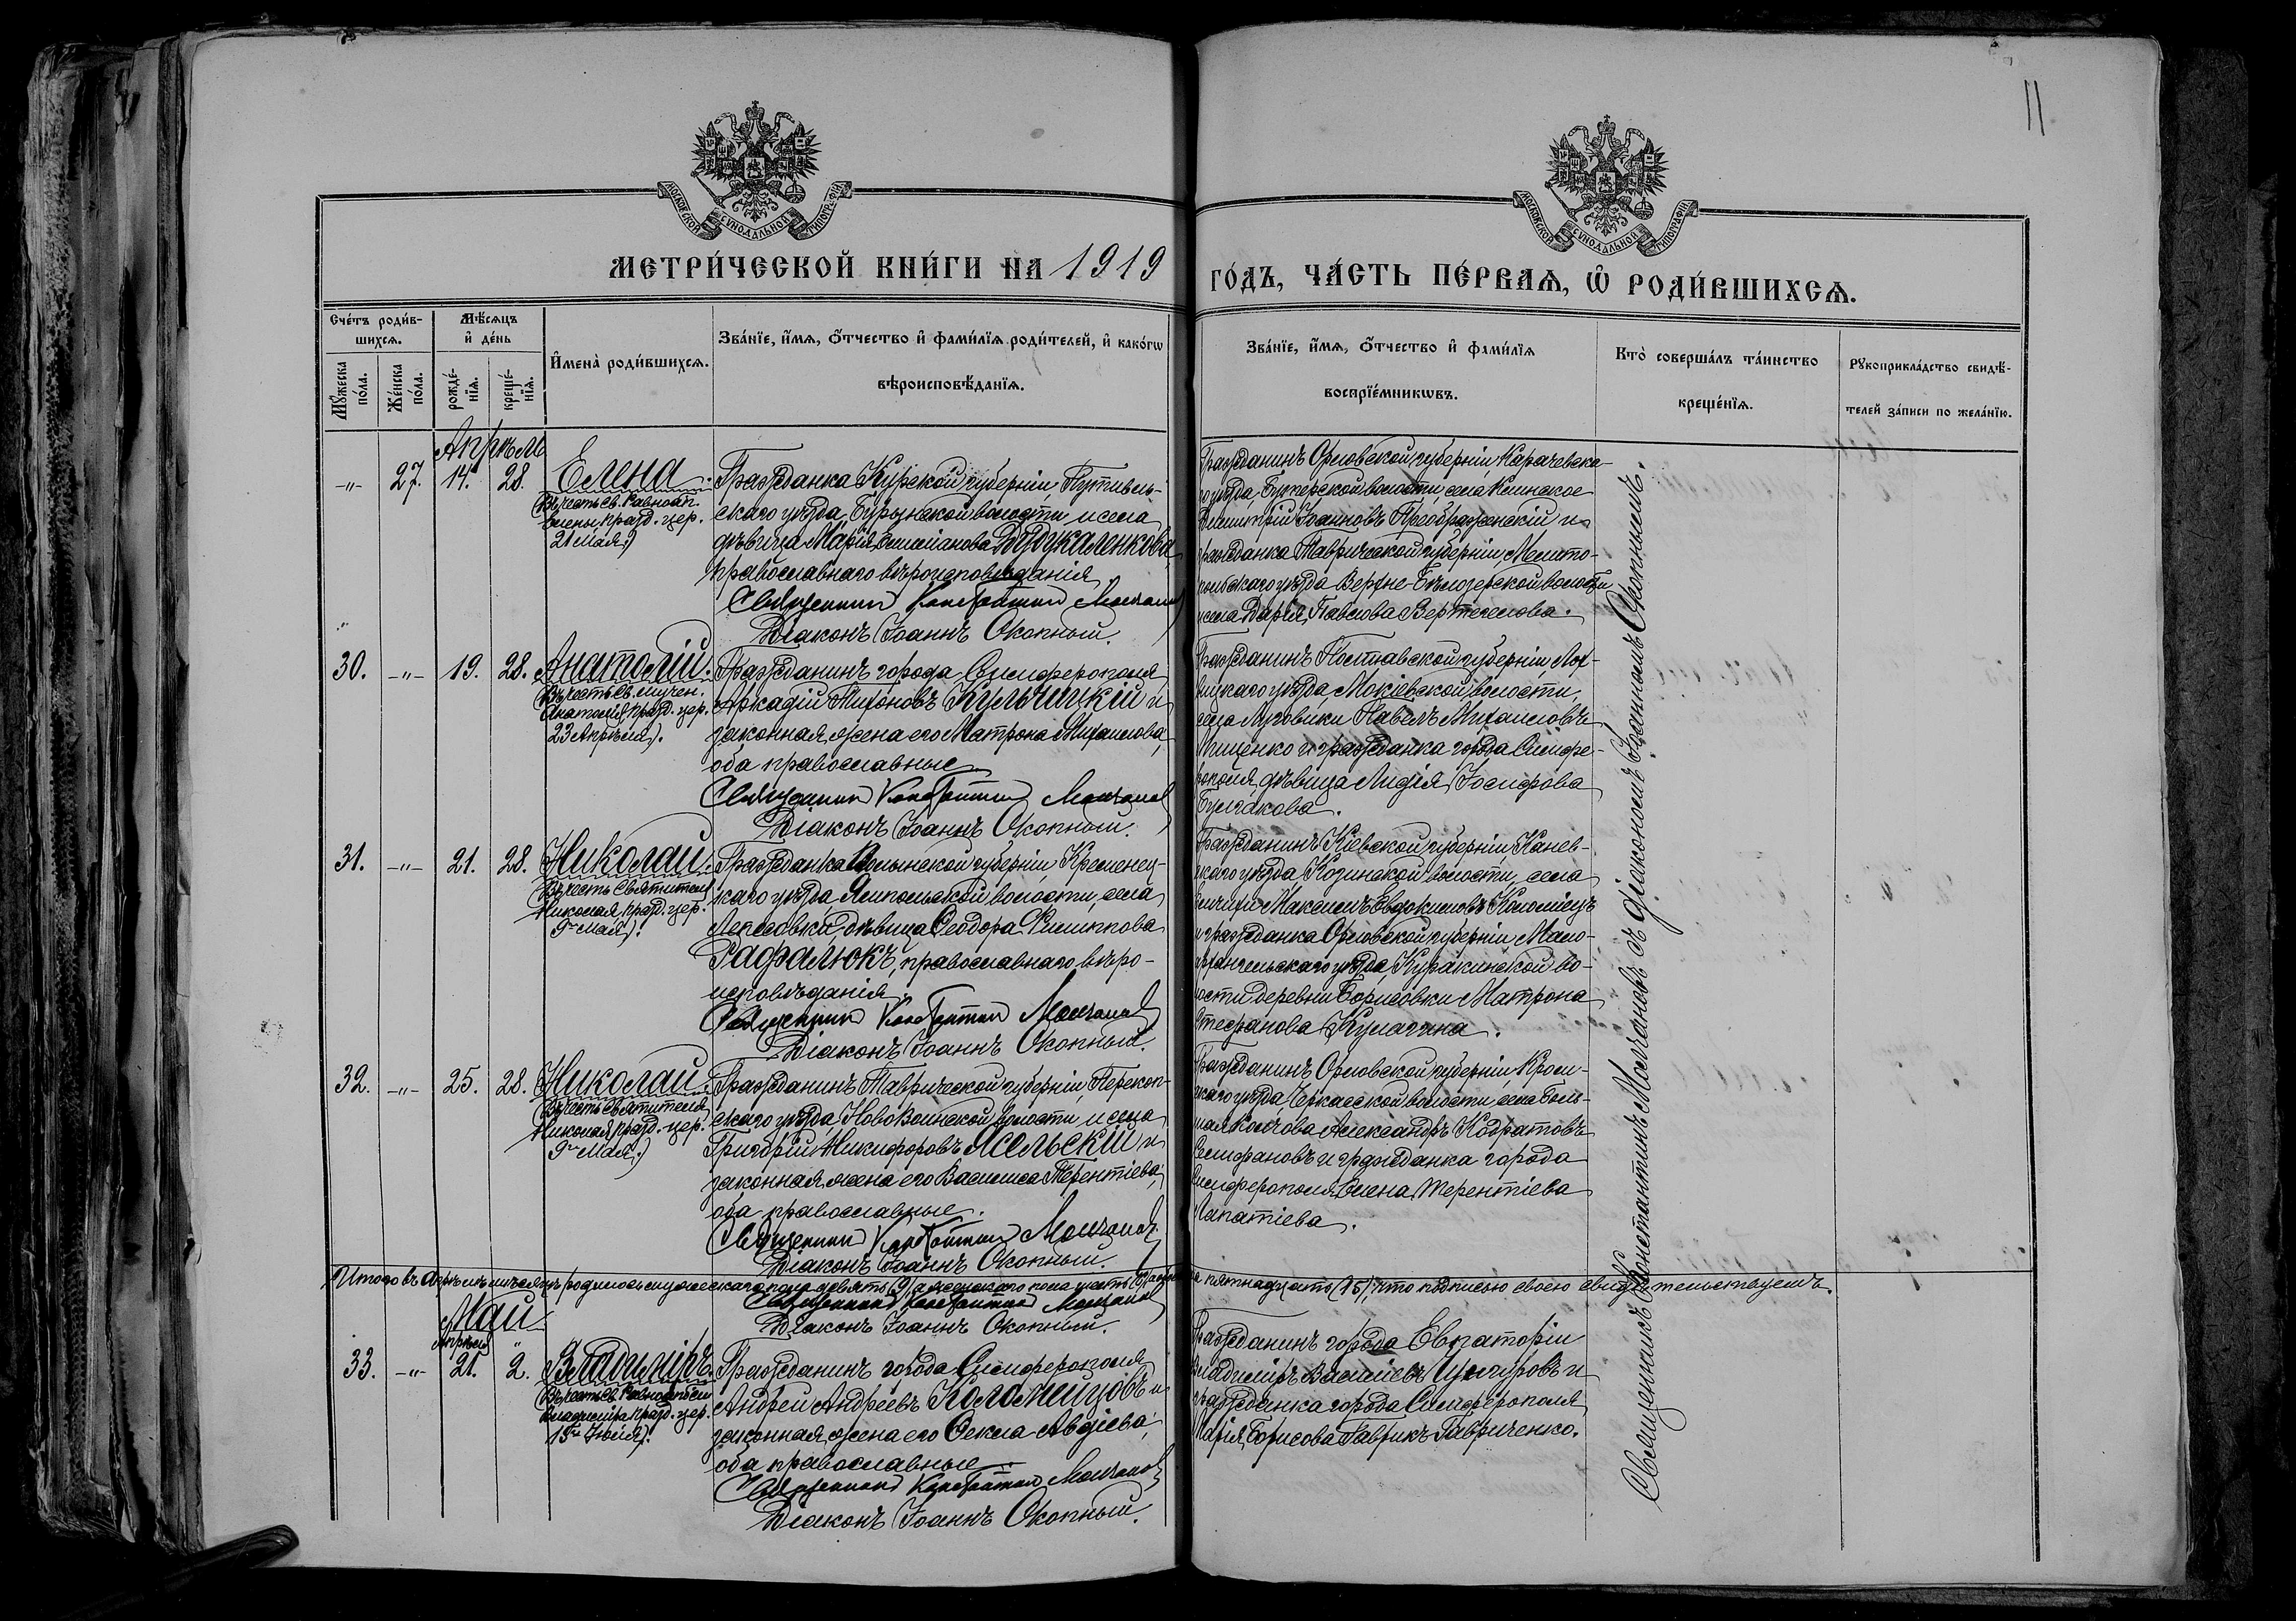 11
МОСКОВСКОЙ СѴНОДАЛЬНОЙ ТИПОГРАФІИ
МОСКОВСКОЙ СѴНОДАЛЬНОЙ ТИПОГРАФІИ
МЕТРИ́ЧЕСКОЙ КНИ́ГИ НА 1919
ГО́ДЪ, ЧА́СТЬ ПЕ́РВАѦ, Ѡ҆ РОДИ́ВШИХСѦ.
Сче́тъ роди́в-
шихсѧ.
Мꙋ́жеска по́ла.
Же́нска по́ла.
Мѣ́сѧцъ
и҆ де́нь
рожде́-
нїѧ.
креще́-
нїѧ.
И҆мена̀ роди́вшихсѧ.
Зва́нїе, и҆́мѧ, ѻ҆́тчество и҆ фами́лїѧ роди́телей, и҆ како́гѡ
вѣроисповѣ́данїѧ.
Зва́нїе, и҆́мѧ, ѻ҆́тчество и҆ фами́лїѧ
воспрїе́мникѡвъ.
Кто̀ соверша́лъ та́инство
креще́нїѧ.
Рꙋкоприкла́дство свидѣ́-
телей за́писи по жела́нїю.
Апрѣль
-"- 27. 14. 28. Елена.
Въ честь Св. Равноап.
Елены, празд. цер.
21 Мая.)
Гражданка Курской губерніи, Путивль-
скаго уѣзда, Бурынской волости и села
дѣвица Марія Емиліанова
православнаго вѣроисповѣданія
Священникъ Константинъ Молчановъ
Діаконъ Іоаннъ Окопный.
Гражданинъ Орловской губерніи, Карачевска-
го уѣзда, волости, села
Димитрій Іоанновъ Преображенскій и
гражданка Таврической губерніи, Мелито-
польскаго уѣзда Верхне-Бѣлозерской волости
и села Дарія Павлова
30. -"- 19. 28. Анатолій.
Въ честь Св. мучен.
Анатолія, празд. цер.
23 Апрѣля).
Гражданинъ города Симферополя
Аркадій Тихоновъ Кульчицкій и
законная жена его Матрона Михаилова,
оба православные
Священникъ Константинъ Молчановъ
Діаконъ Іоаннъ Окопный.
Гражданинъ Полтавской губерніи, Лох-
вицкаго уѣзда, Мокіевской волости,
села Луговики Павелъ Михаиловъ
и гражданка города Симфе-
рополя, дѣвица Лидія Іосифова
Булгакова.
31. -"- 21. 28. Николай.
Въ честь Святителя
Николая, празд. цер.
9го Мая).
Гражданка Волынской губерніи, Кременец-
каго уѣзда Ямпольской волости, села
дѣвица Ѳеодора Филиппова
Рафалюкъ, православнаго вѣро-
исповѣданія.
Священникъ Константинъ Молчановъ
Діаконъ Іоаннъ Окопный.
Гражданинъ Кіевской губерніи, Канев-
скаго уѣзда Козинской волости, села
Максимъ Евдокимовъ Коломіецъ
и гражданка Орловской губерніи Мало-
архангельскаго уѣзда, Куракинской во-
лости деревни Борисовки Матрона
Стефанова Кулагина.
32. -"- 25. 28. Николай.
Въ честь Святителя
Николая, празд. цер.
9го Мая.)
Гражданинъ Таврической губерніи, Перекоп-
скаго уѣзда, Ново Воинской волости и села
Григорій Никифоровъ Ясельскій и
законная жена его Василиса Терентіева,
оба православные.
Священникъ Константинъ Молчановъ
Діаконъ Іоаннъ Окопный.
Гражданинъ Орловской губерніи, Кром-
скаго уѣзда, Черкасской волости, села Боль-
шая Александръ Кодратовъ
и гражданка города
Симферополя Елена Терентіева
Лапатіева.
Итого въ Апрѣлѣ мѣсяцѣ родилось мужескаго пола девять (9), а женскаго пола шесть (6), а
пятнадцать (15), что подписью своею свидѣтельствуемъ.
Священникъ Константинъ Молчановъ
Діаконъ Іоаннъ Окопный.
Май
Апрѣля "
33. -"- 21. 2. Владиміръ.
Въ честь Св. Равноапостол.
Владиміра, празд. цер.
15го Іюля).
Гражданинъ города Симферополя
Андрей Андреевъ Коломийцовъ и
законная жена его Ѳекла Авдіева,
оба православные
Священникъ Константинъ Молчановъ
Діаконъ Іоаннъ Окопный.
Гражданинъ города Евпаторіи
Владиміръ Василіевъ и
гражданка города Симферополя
Марія Борисова Гаврикъ-Гавриченко.
Священникъ Константинъ Молчановъ съ діакономъ Іоанномъ Окопнымъ.